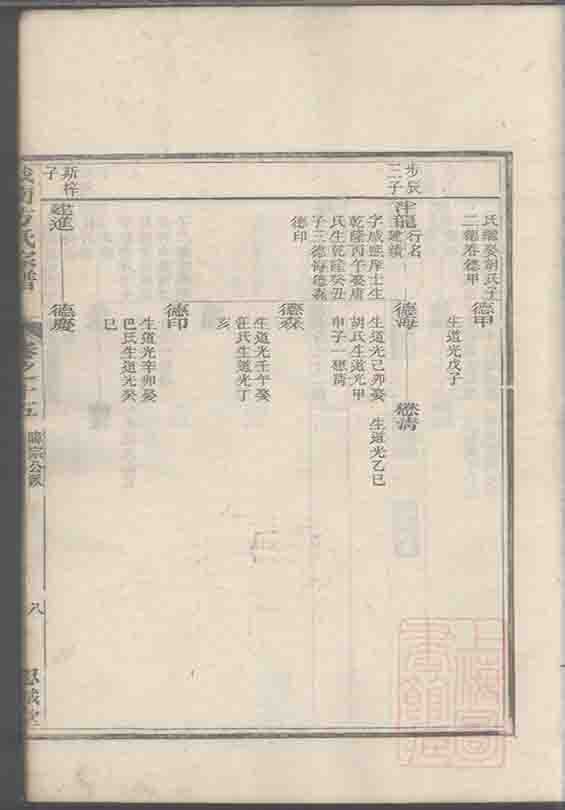 氏繼娶胡氏子
二龍春德甲
德甲
生道光戊子
步辰
三子
注龍
行名
建績
字咸熙庠士生
乾隆丙午娶唐
氏生乾隆癸丑
子三德海德森
德印
德海
生道光己卯娶
胡氏生道光甲
申子一懋清
懋清
生道光乙巳
德森
生道光壬午娶
汪氏生道光丁
亥
德印
生道光辛卯娶
巴氏生道光癸
巳
斯梓
子
建進
德慶
方氏宗譜
卷之十五
公派
八
上海圖書館藏